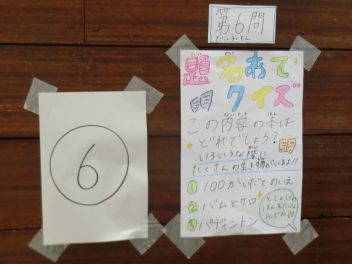 第6問
だい もん
題名あて
クイズ
この内容の本は
どれでしょう?
いろいろな階に
たくさんの生き物がいるよ!!
① 100かいだてのいえ
② バムとケロ
③ パディントン
⑥